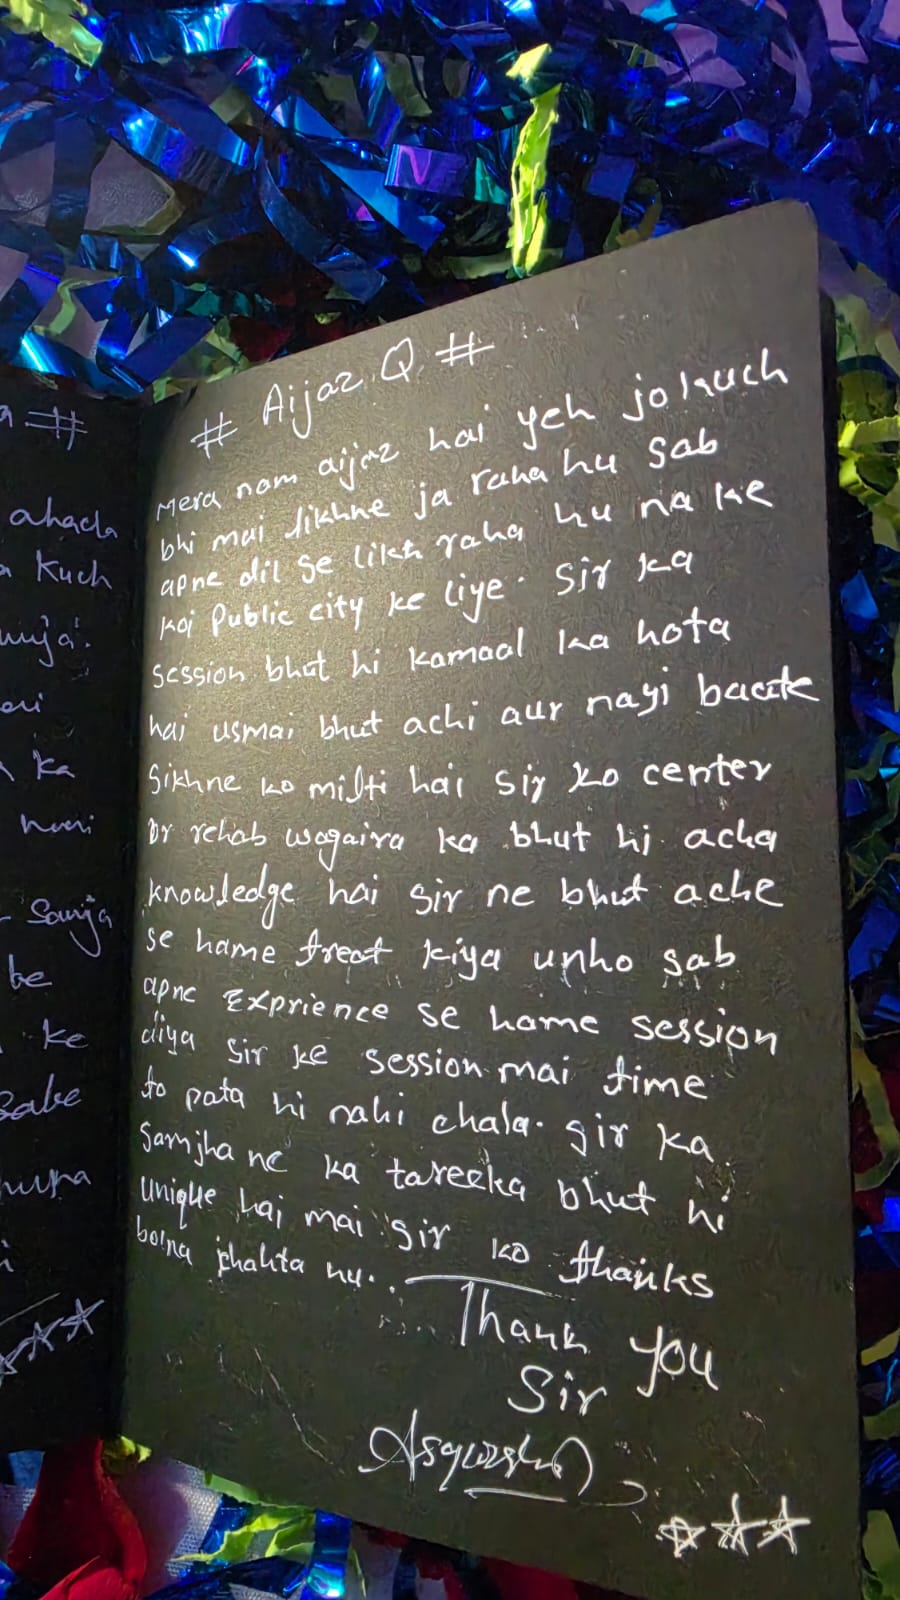 # Aijaz Q #
Mera nam aijaz hai yeh jo kuch
bhi mai likhne ja raha hu sab
apne dil se likh raha hu na ke
koi Public city ke liye. Sir ka
session bhut hi kamaal ka hota
hai usmai bhut achi aur nayi
Sikhne ko milti hai sir ko center
or rehab wagaira ka bhut hi acha
knowledge hai sir ne bhut ache
se hame treat kiya unho sab
apne Exprience se hame session
diya sir ke session mai time
to pata hi nahi chala. sir ka
samjha ne ka tareeka bhut hi
unique hai mai sir ko thanks
bolna chahta hu.
Thank you
Sir
#
ahada
Kuch
ka
Sanja
be
ke